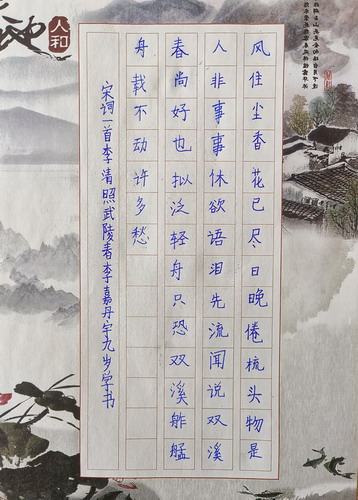 风住尘香花已尽日晚倦梳头物是
人非事事休欲语泪先流闻说双溪
春尚好也拟泛轻舟只恐双溪舴艋
舟载不动许多愁
宋词一首李清照武陵春李嘉丹宇九岁学书
人和